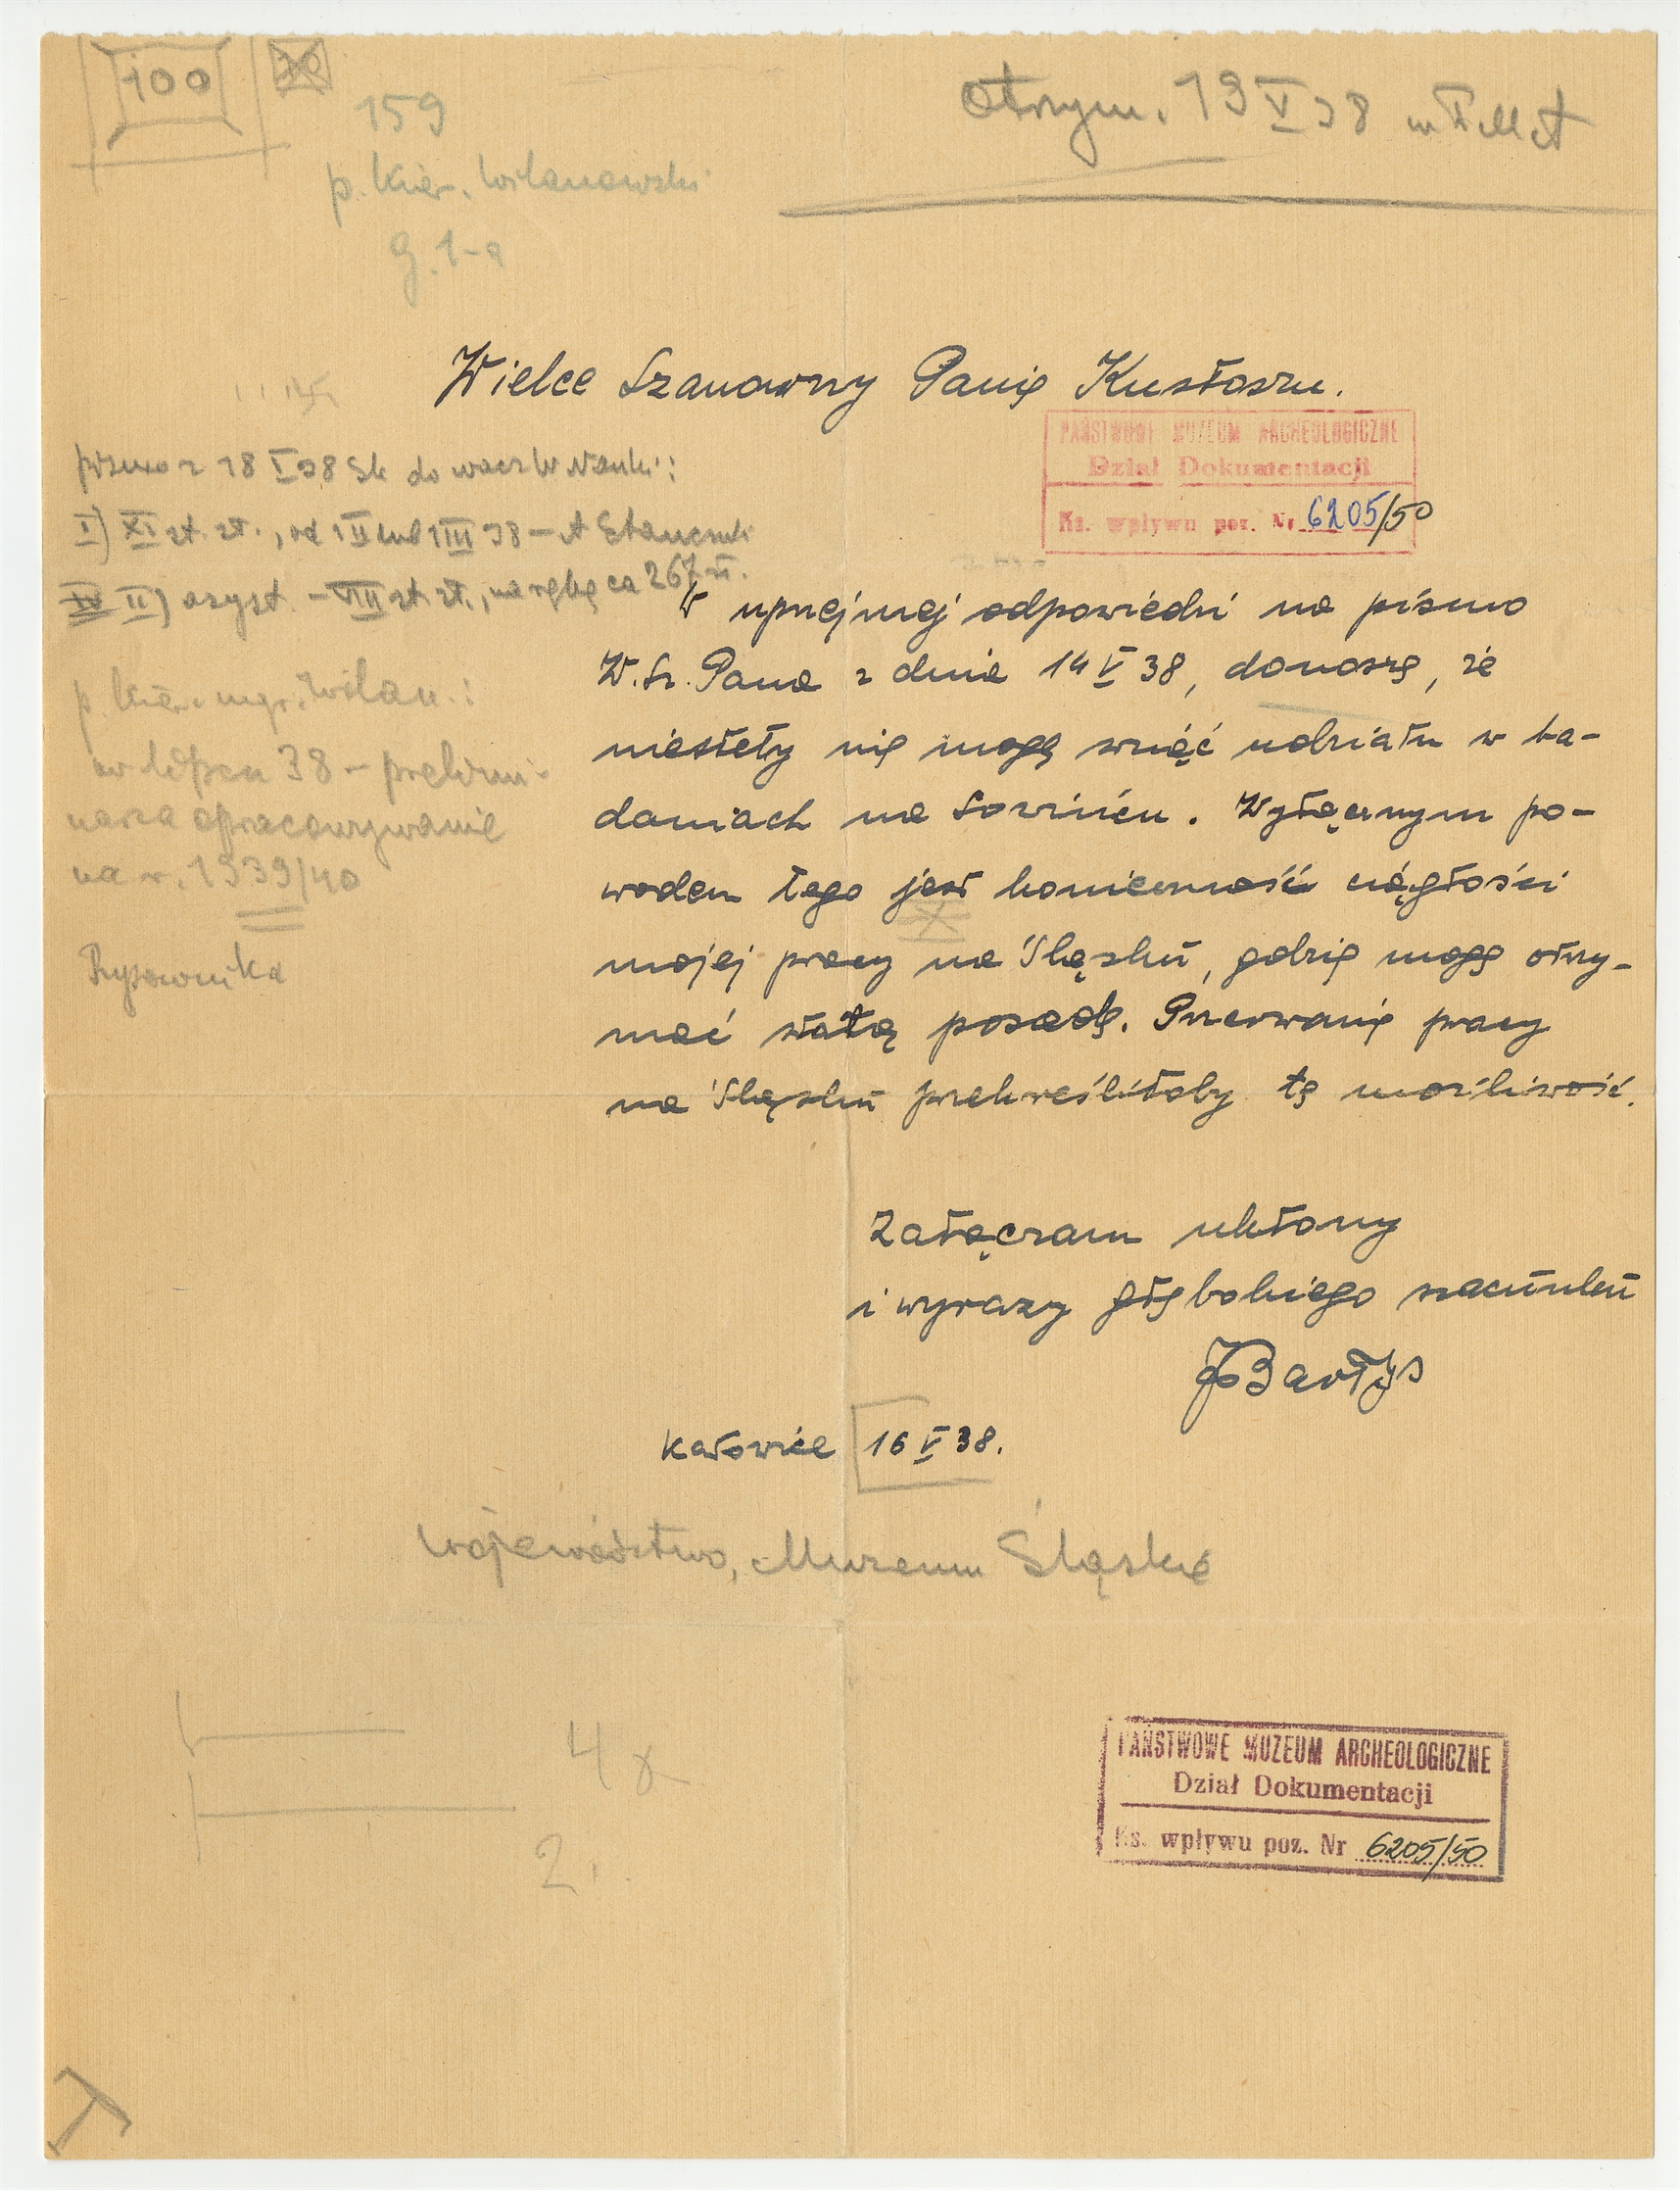 100
159
p. kier. Wilanowski
g. 1-a
otrzym. 19 V 38 w P.M.A
Wielce Szanowny Panie Kustoszu.
PAŃSTWOWE MUZEUM ARCHEOLOGICZNE
Dział Dokumentacji
Ks. wpływu poz. Nr 6205/50
pismo z 18 V 38 do
I) XI st. sł., od 1 II lub 1 III 38 –
II) asyst. – VIII st. sł., na rękę ca 267 zł.
p. kier. mgr. Wilan.:
w lipcu 38 – prelimi-
narza opracowywanie
na r. 1939/40
Rysownika
W uprzejmej odpowiedzi na pismo
W. Sz. Pana z dnia 14 V 38, donoszę, że
niestety nie mogę wziąć udziału w ba-
daniach na Łowińcu. Wyłącznym po-
wodem tego jest konieczność ciągłości
mojej pracy na Śląsku, gdzie mogę otrzy-
mać stałą posadę. Przerwanie pracy
na Śląsku przekreśliłoby tę możliwość.
Załączam ukłony
i wyrazy głębokiego szacunku
JBartys
Katowice 16 V 38.
Województwo, Muzeum Śląskie
4 x
2.
PAŃSTWOWE MUZEUM ARCHEOLOGICZNE
Dział Dokumentacji
Ks. wpływu poz. Nr 6205/50